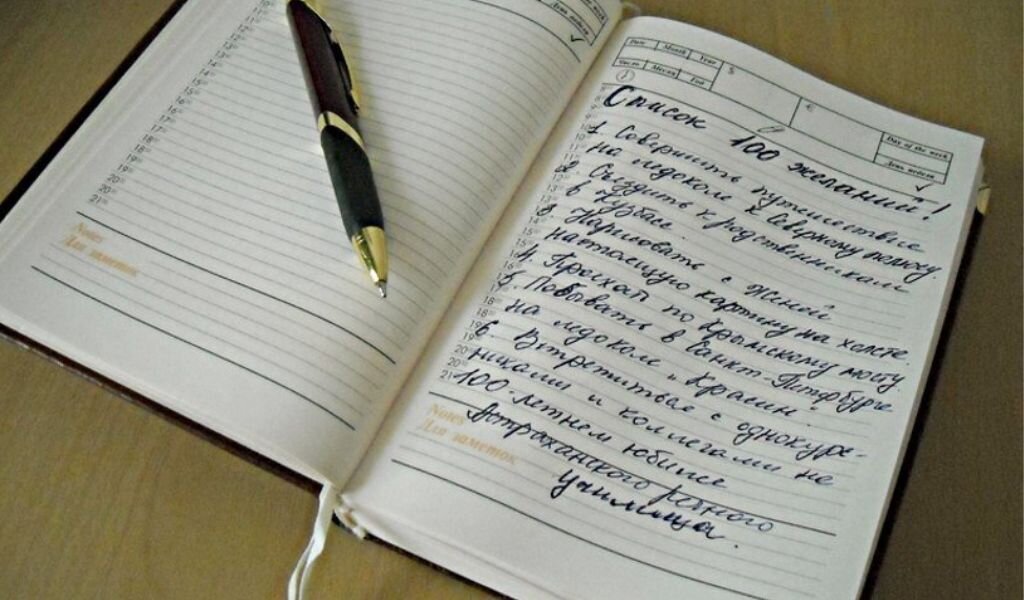 Day of the week
День недели
10
11
12
13
14
15
16
17
18
19
20
21
Notes
Для заметок
Date Month Year $ €
Число Месяц Год
Day of the week
День недели
Список 100 желаний!
1. Совершить путешествие
на ледоколе к Северному полюсу.
2. Съездить к родственникам
в Кузбасс.
3. Нарисовать с Жиной
настоящую картину на холсте
4. Проехать по Крымскому мосту
5. Побывать в Санкт-Питербурге
на ледокол "Красин".
6. Встретиться с однокурс-
никами и коллегами не
100-летнем юбилее
Астраханского речного
училища.
Notes
Для заметок